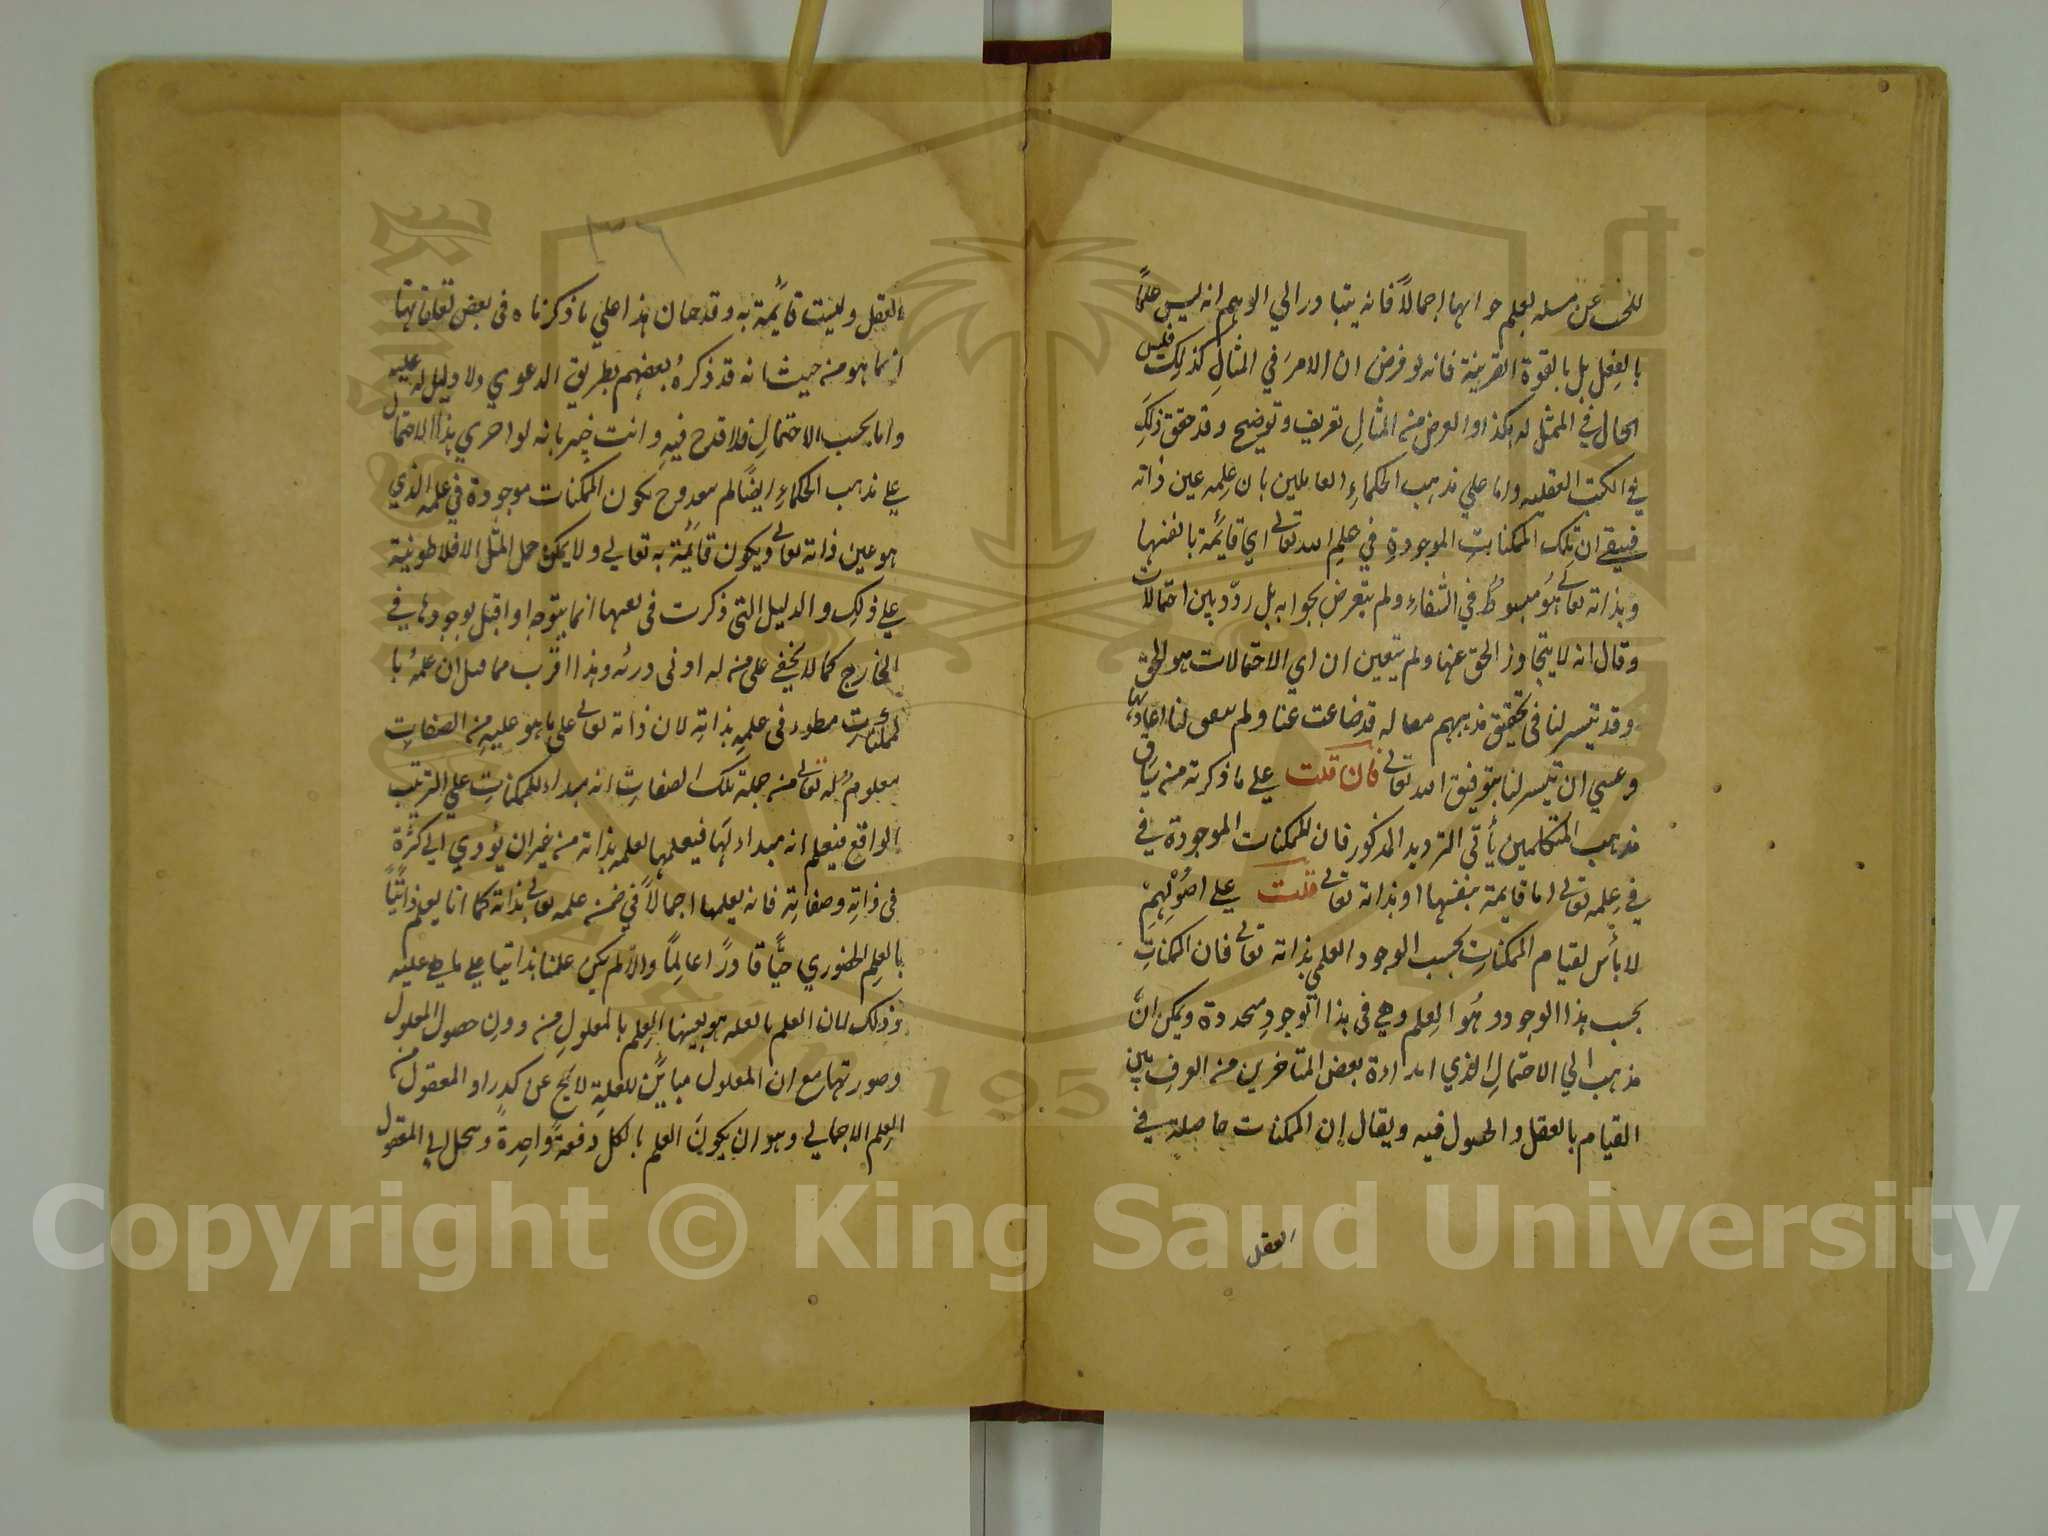 بعلم جوابها اجمالاً فانه يتبادر الي الوهم انه ليس علماً
بالفعل بل بالقوة القريبة فانه لو فرض ان الامر في المثال كذلك فليس
الحال في الممثل له هكذا والغرض من المثال تعريف وتوضيح وقد حقق ذلك
في الكتب العقليه واما علي مذهب الحكماء القايلين بان علمه عين ذاته
فبقي ان تلك الممكنات الموجودة في علم الله تعالى اي قايمة بانفسها
وبذاته تعالى هو مبسوط في الشفاء ولم يتعرض بجوابه بل ردد بين احتمالات
وقال انه لا يتجاوز الحق عنها ولم يتعين ان اي الاحتمالات هو الحق
وقد تيسر لنا في تحقيق مذهبهم مقاله قد ضاعت عنا ولم يتفق لنا اعادتها
وعسي ان تيسر لنا بتوفيق الله تعالى فان قلت علي ما ذكرته من سياق
مذهب المتكلمين يأتي الترديد المذكور فان للممكنات الموجودة في
في علمه تعالى اما قايمة بنفسها او بذاته تعالى قلت علي اصولهم
لا بأس لقيام الممكنات بحسب الوجود العلمي بذاته تعالى فان الممكنات
بحسب هذا الوجود هو العلم وهي في هذا الوجود متحددة ويمكن ان
مذهب الي الاحتمال الذي ابداءه بعض المتاخرين من الفرق بين
القيام بالعقل والحصول فيه ويقال ان الممكنات حاصلة في
العقل
٣٦
العقل وليست قايمة به وقد حان هذا علي ما ذكرناه في بعض تعلقاتها
انما هو من حيث انه قد ذكره بعضهم بطريق الدعوي ولا دليل له عليه
واما بحسب الاحتمال فلا قدح فيه وانت خبير بانه لو اجري هذا الاحتمال
علي مذهب الحكماء ايضاً لم يكون الممكنات موجودة في علمه الذي
هو عين ذاته تعالى ويكون قايمة به تعالي ولا يمكن حمل المثل الافلاطونية
علي ذلك والدليل التي ذكرت في نفيها انما يتوجه اذا قيل بوجودها في
الخارج كما لا يخفي على من له ادنى دربه وهذا اقرب مما قيل ان علمه با
لممكنات مطوي في علمه بذاته لان ذاته تعالى على ما هو عليه من الصفات
معلوم له تعالى من جملة تلك الصفات انه مبداء للممكنات علي الترتيب
الواقع فيعلم انه مبداء لها فيعلمها بعلمه بذاته من غير ان يؤدي الي كثرة
في ذاته وصفاته فانه يعلمها اجمالاً في ضمن علمه تعالى بذاته كما انا يعلم ذاتنا
بالعلم الحضوري حياً قادراً عالماً والا لم يكن علمنا بذاتيا علي ما هي عليه
وذلك لان العلم بالعله هو بعينها العلم بالمعلول من دون حصول المعلول
وصورتها مع ان المعلول مباين للعلة لا يخ عن كدر او المعقول من
العلم الاجمالي وهو ان يكون العلم بالكل دفعة واحدة وينحل الي المعقول
Copyright © King Saud University
1957